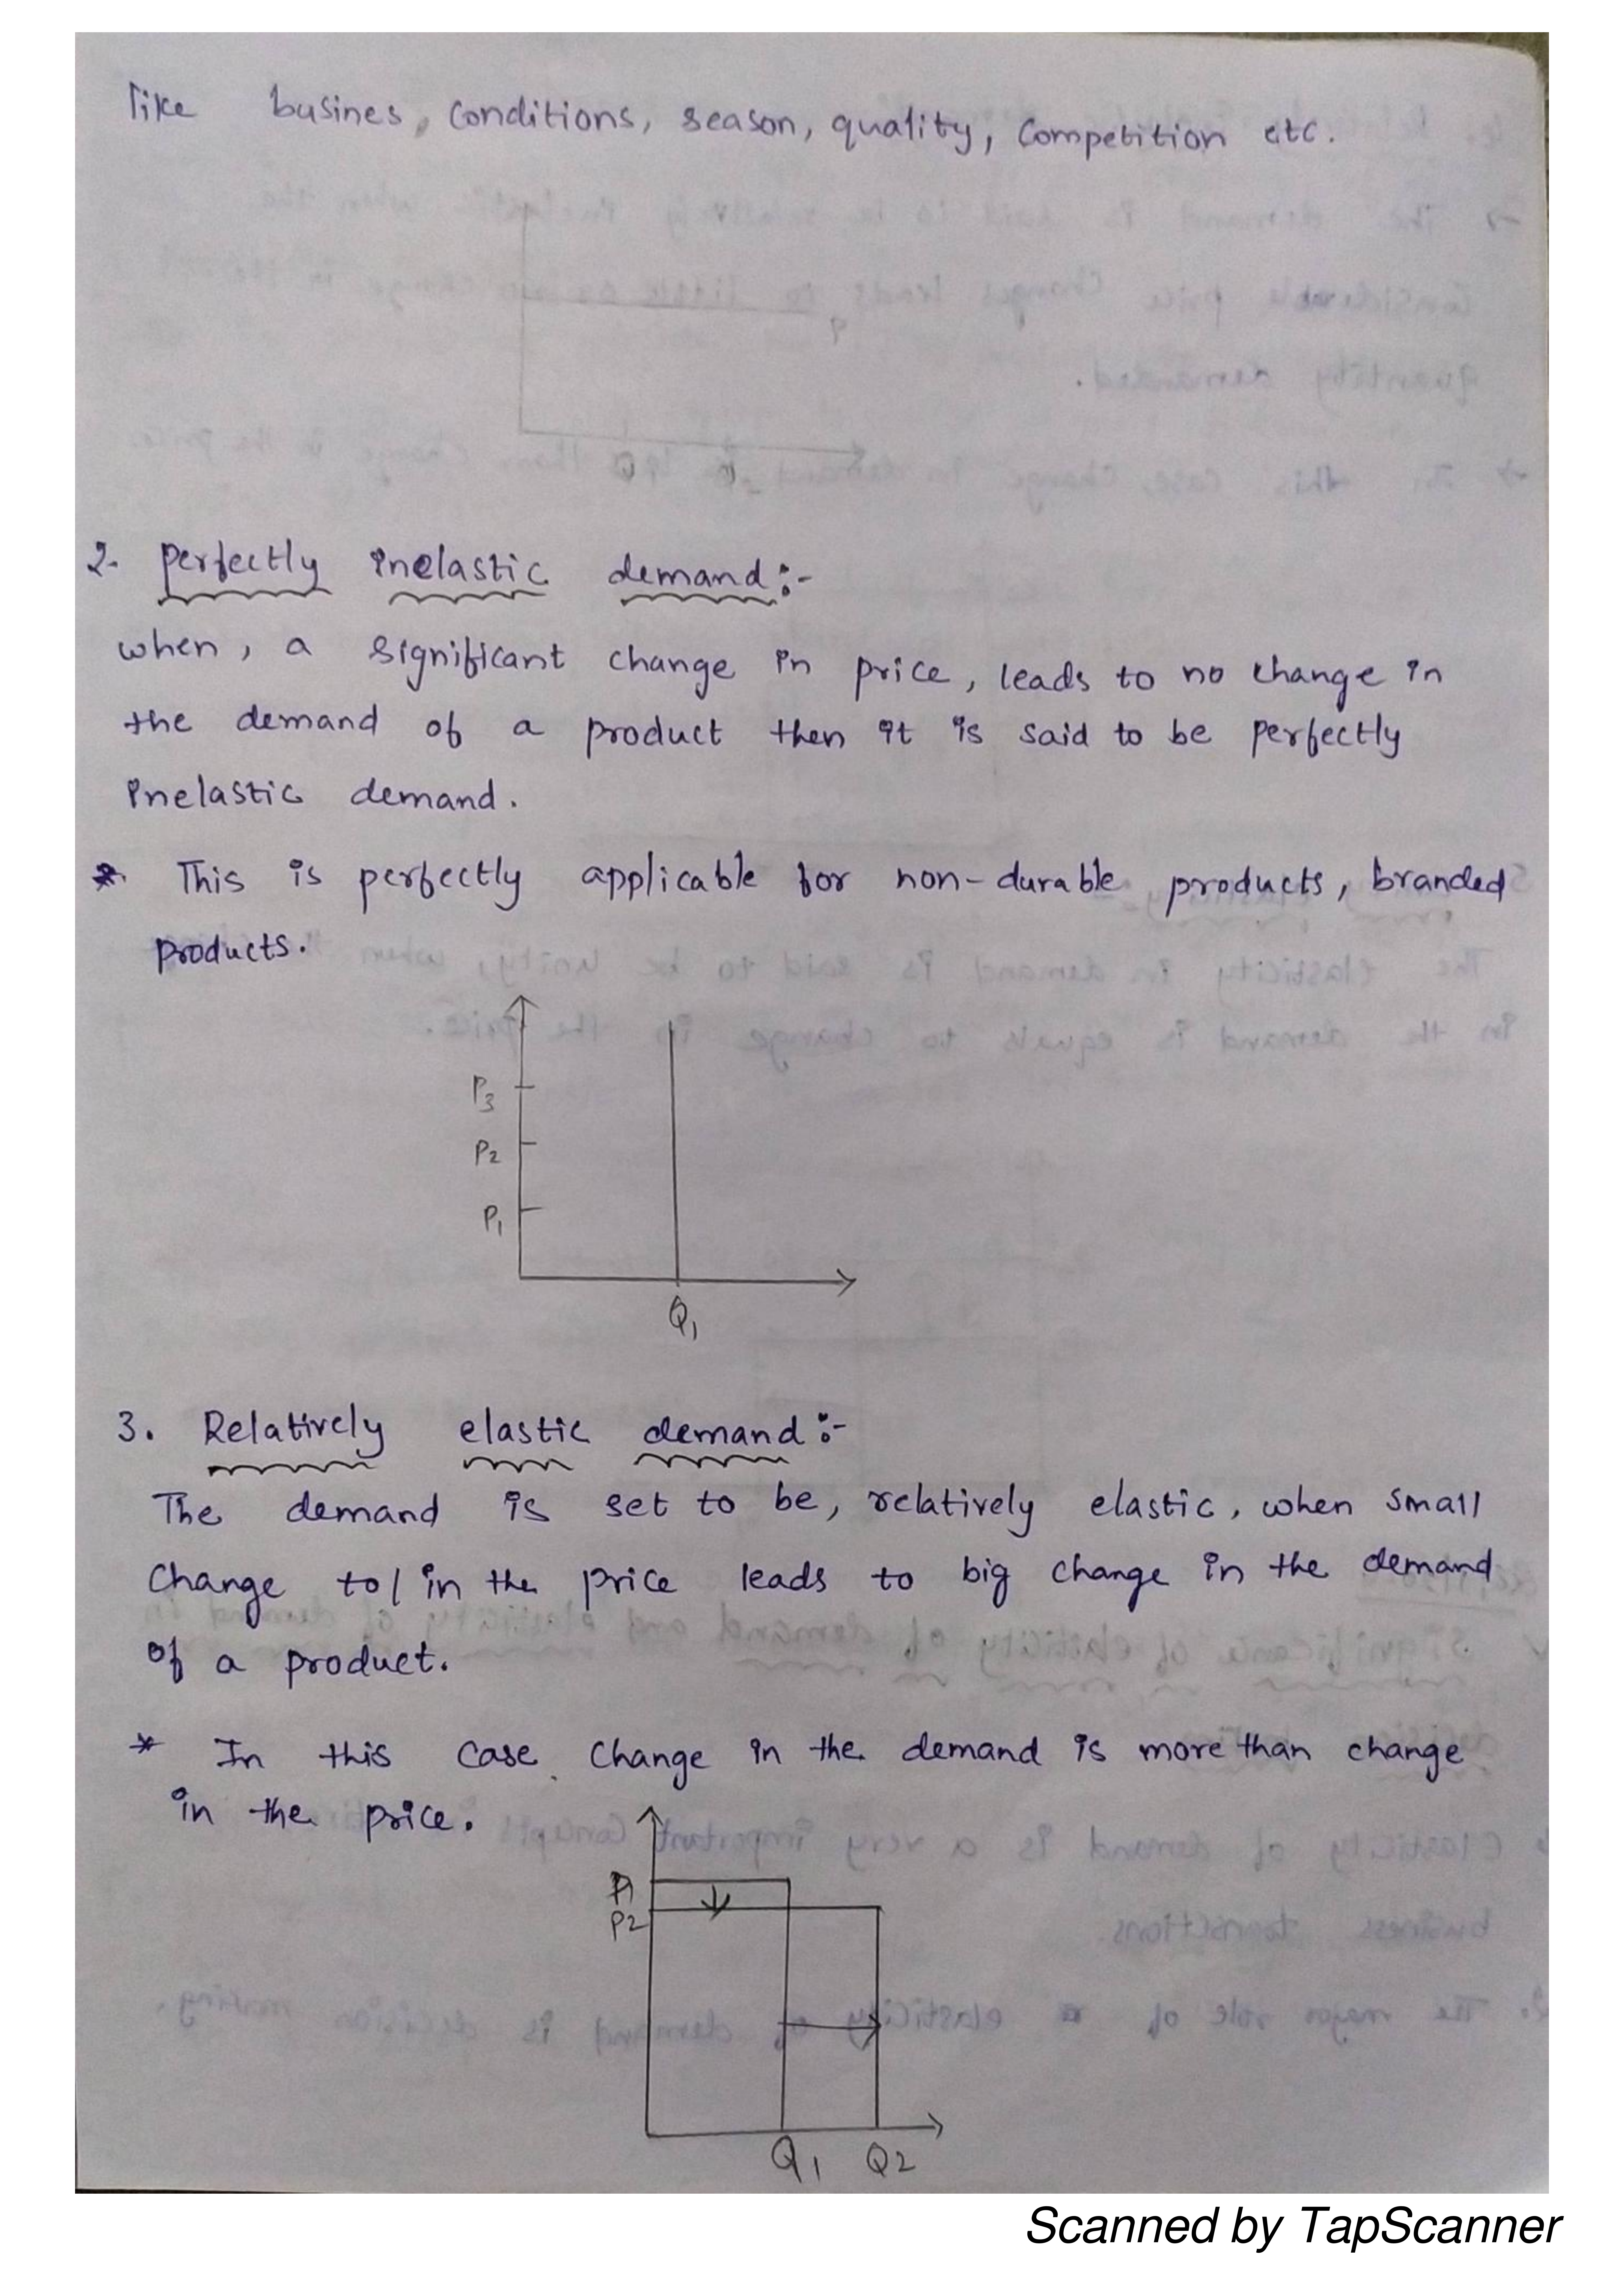 like busines, conditions, season, quality, competition etc.
2. perfectly inelastic demand:-
when, a significant change in price, leads to no change in
the demand of a product then it is said to be perfectly
inelastic demand.
* This is perfectly applicable for non-durable products, branded
products.
P3
P2
P1
Q1
3. Relatively elastic demand:-
The demand is set to be, relatively elastic, when small
change to/in the price leads to big change in the demand
of a product.
* In this case change in the demand is more than change
in the price.
P1
P2
Q1 Q2
Scanned by TapScanner